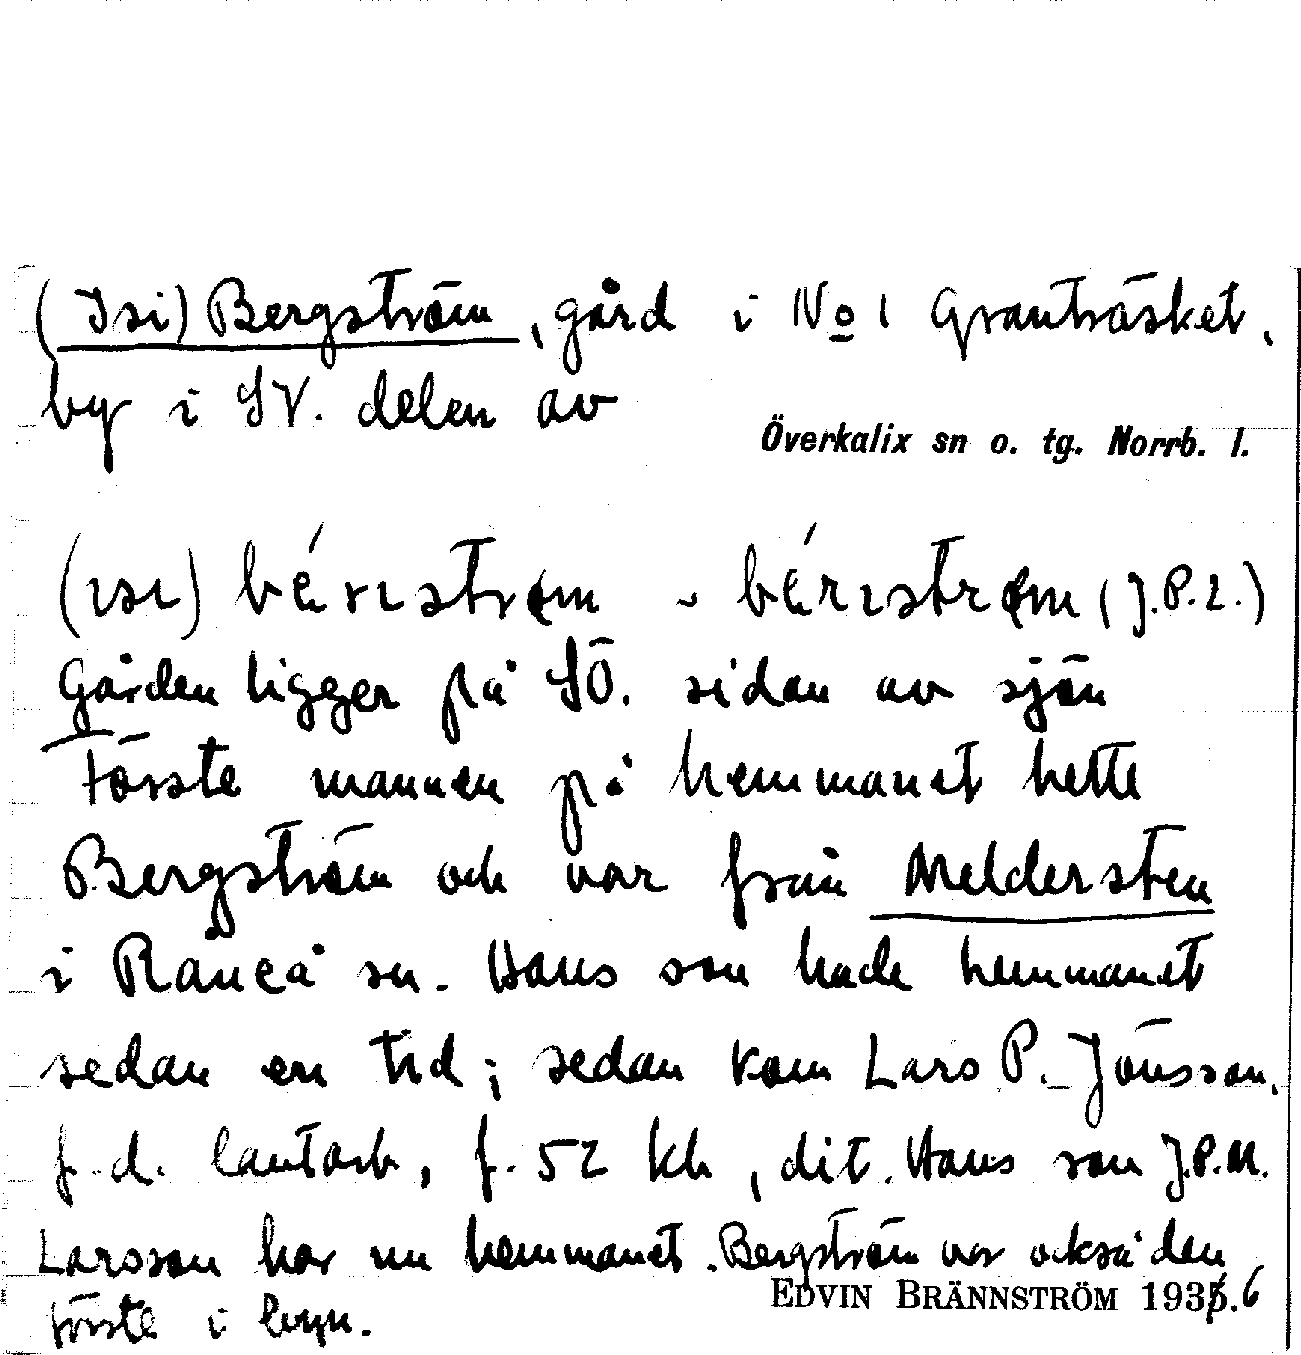 (Isi) Bergström, gård i No 1 Granträsket,
by i SV. delen av
Överkalix sn o. tg. Norrb. l.
(ısı) bérıstrøm ~ bérıstrøm (J.P.L.)
Gården ligger på SÖ. sidan av sjön
Förste mannen på hemmanet hette
Bergström och var från Meldersten
i Råneå sn. Hans son hade hemmanet
sedan en tid; sedan kom Lars P. Jönsson,
f.d. lantarb, f. 52 kh, dit. Hans son J.P.M.
Larsson har nu hemmanet. Bergström var också den
förste i byn.
EDVIN BRÄNNSTRÖM 193 .6